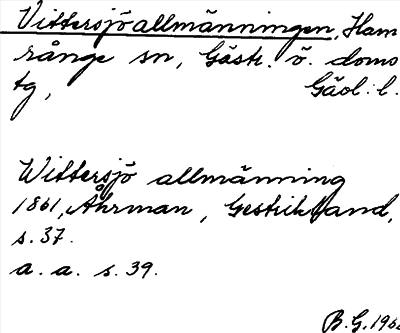 Vittersjöallmänningen, Ham
rånge sn, Gästr. ö. doms
tg, Gävl. l.
Wittersjö allmänning
1861, Åhrman, Gestrikland,
s. 37.
a. a. s. 39.
B.G. 196